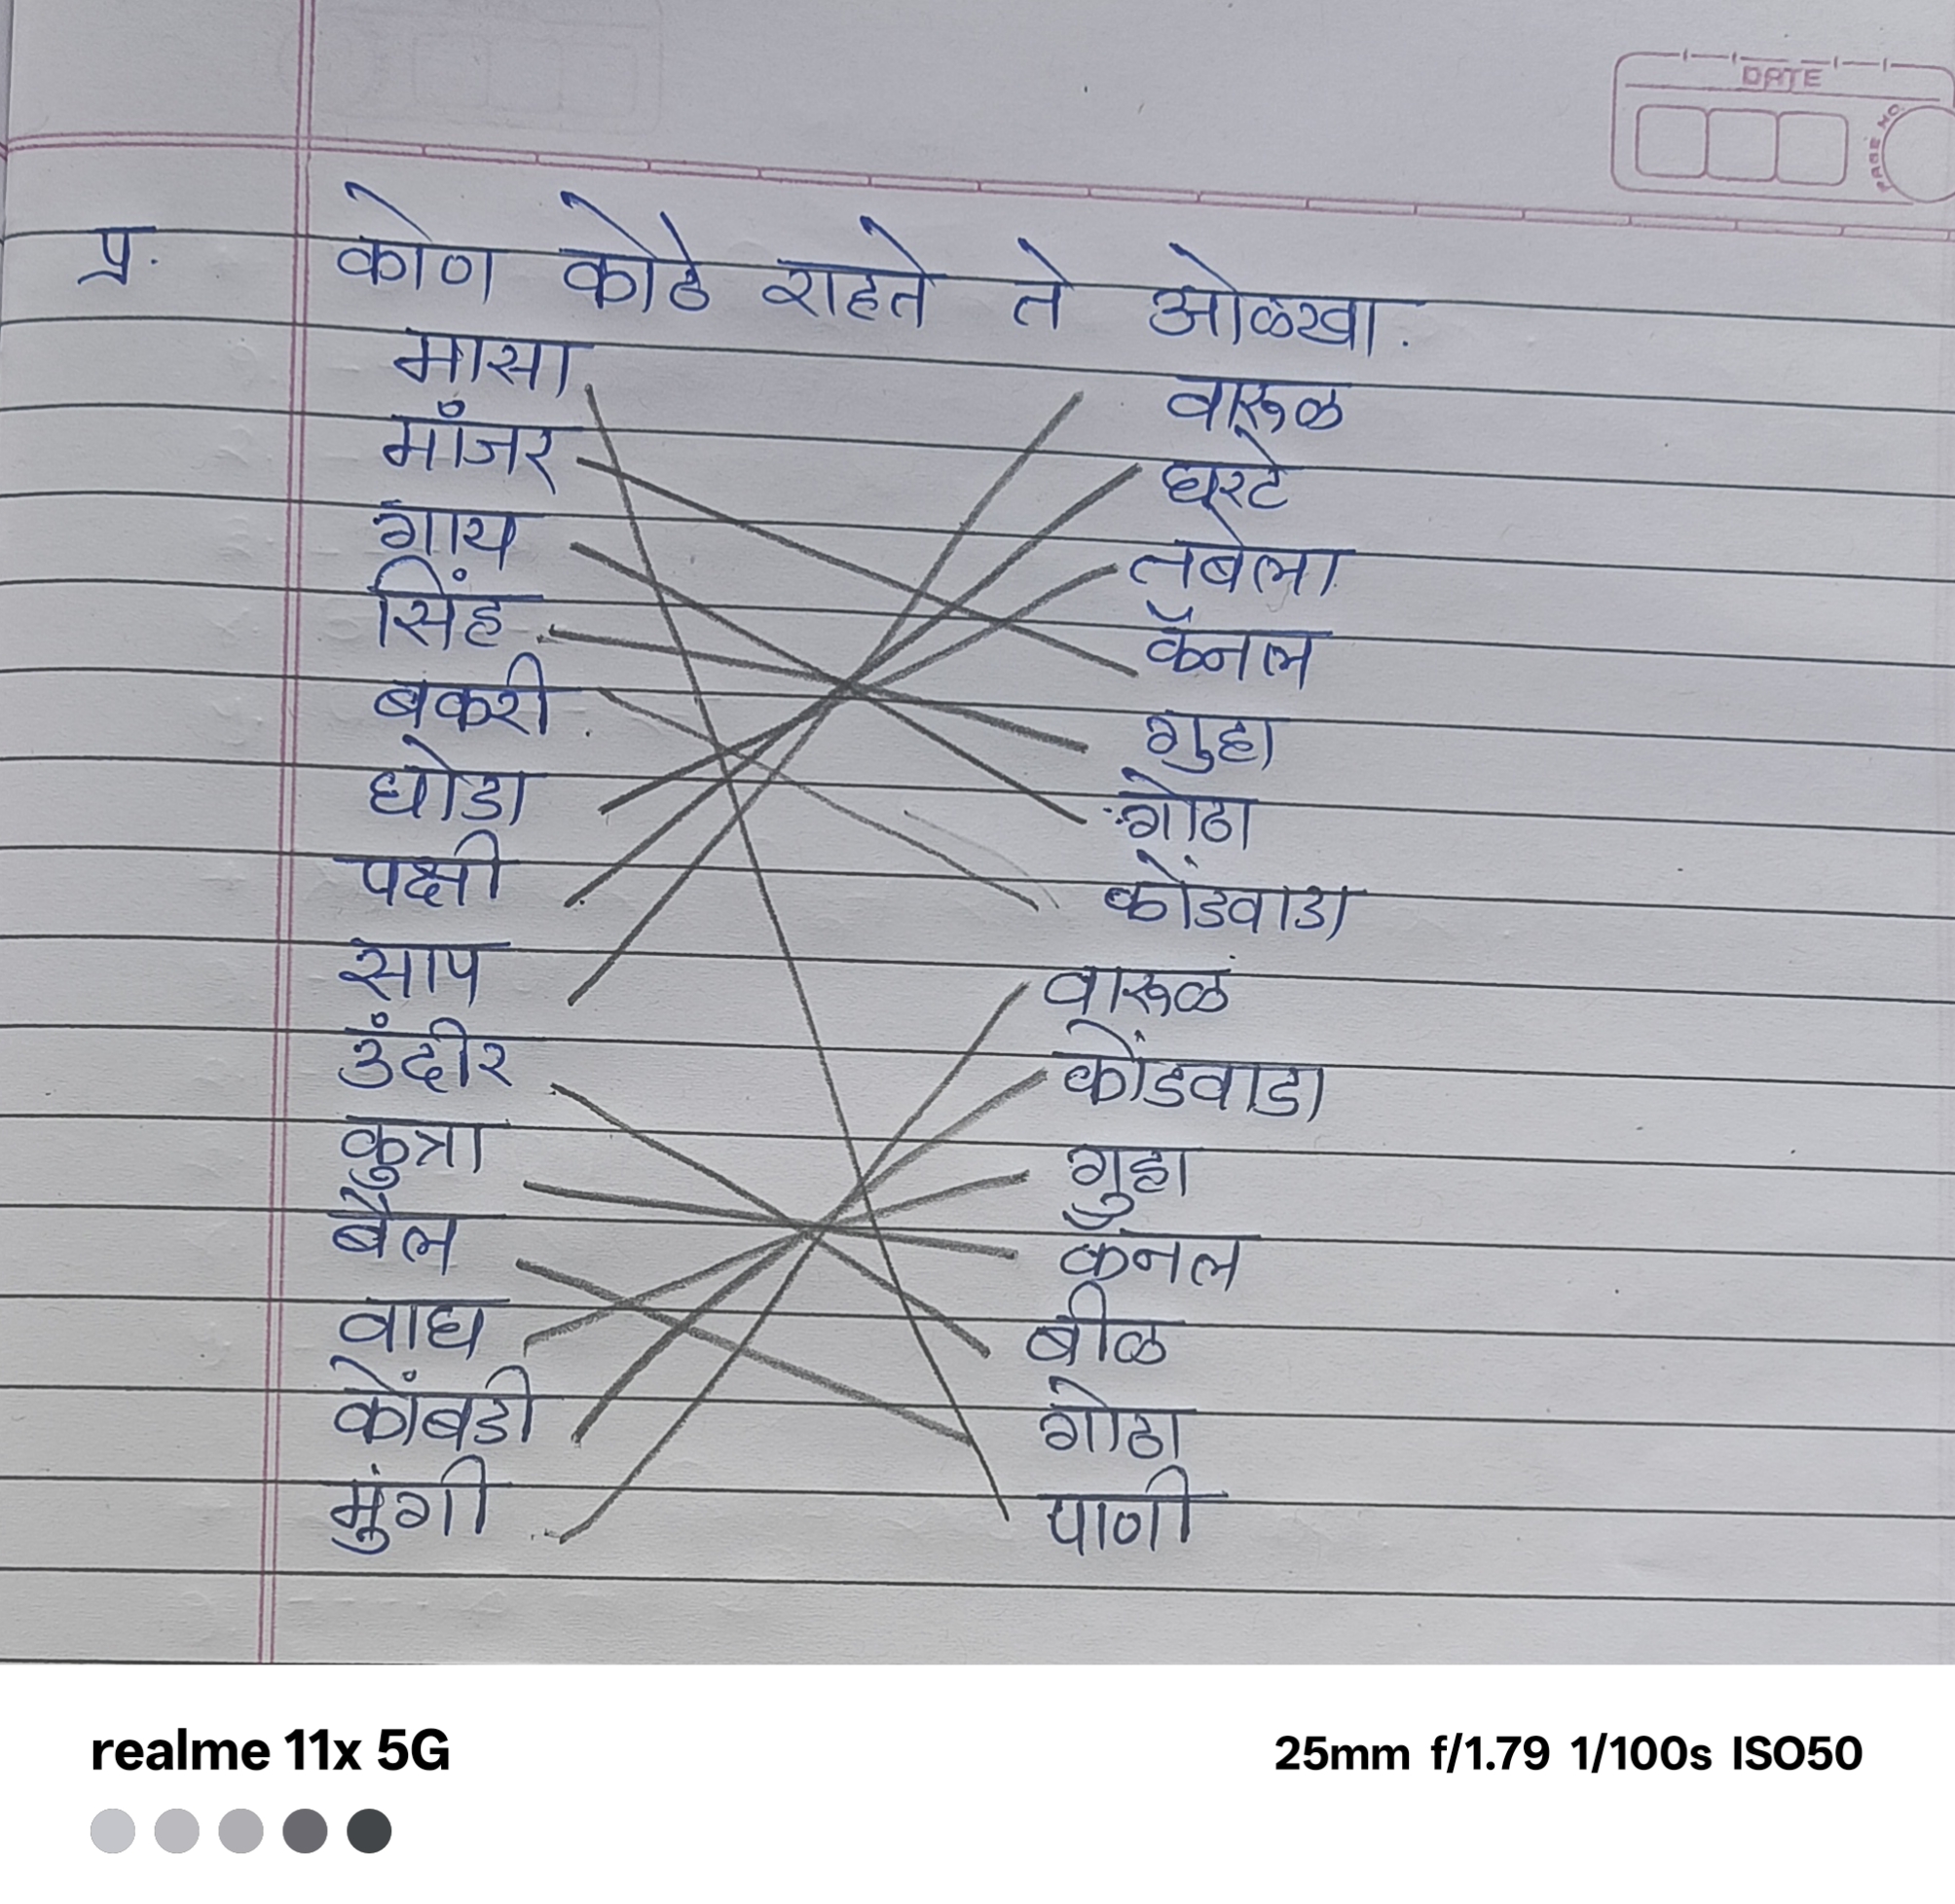 DATE
PAGE NO.
प्र. कोण कोठे राहते ते ओळखा.
मासा वारूळ
माँजर घरटे
गाय तबेला
सिंह कॅनल
बकरी गुहा
घोडा गोठा
पक्षी कोंडवाडा
साप वारूळ
उंदीर कोंडवाडा
कुत्रा गुहा
बैल कॅनल
वाघ बीळ
कोंबडी गोठा
मुंगी पाणी
realme 11x 5G 25mm f/1.79 1/100s ISO50